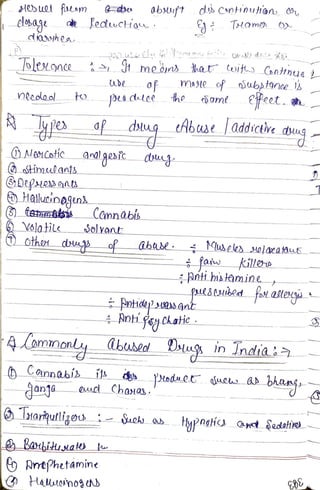 result from a abrupt discontinution or
dosage reduction. Eg: Tramor or
diarrhea.
Tolerance :→ It means that with continue
use of more of substance is
needed to produce the same effect.
Types of drug Abuse / addictive drug
① Narcotic analgesic drug.
② Stimulants
③ Depressants
④ Hallucinogens
⑤ Cannabis
⑥ Volatile Solvant
⑦ other drugs of abuse. ÷ Muscles relaxant
÷ pain killers
÷ Anti histamine,
prescribed for allergies.
÷ Antidepressant
÷ Anti psychotic.
Commonly abused Drugs in India :→
① Cannabis its product such as bhang,
Ganja and Charas.
② Tranquiligers :- Such as Hypnotics and Sedatives
③ Barbiturates
④ Amephetamine
⑤ Hallucinogens